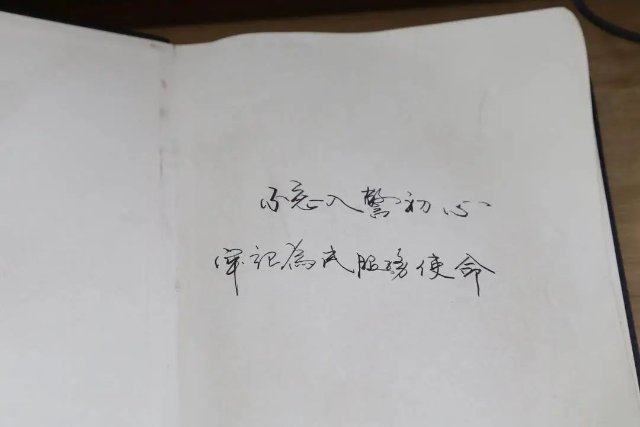 不忘入警初心
牢记为民服务使命